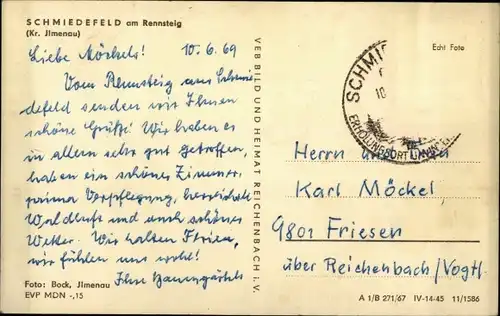 SCHMIEDEFELD am Rennsteig
(Kr. Jlmenau)
Liebe Möckels! 10.6.69
Vom Rennsteig aus Schmie-
defeld senden wir Ihnen
schöne Grüße! Wir haben es
in allem sehr gut getroffen,
haben ein schönes Zimmer,
prima Verpflegung, herrliche
Waldluft und auch schönes
Wetter. Wir halten Ferien,
wir fühlen uns wohl!
Ihre Baumgärtels
Foto: Bock, Jlmenau
EVP MDN -,15
VEB BILD UND HEIMAT REICHENBACH i. V.
Echt Foto
SCHMIE
ERHOLUNGSORT
Herrn und
Karl Möckel
9801 Friesen
über Reichenbach/Vogtl.
A 1/B 271/67 IV-14-45 11/1586